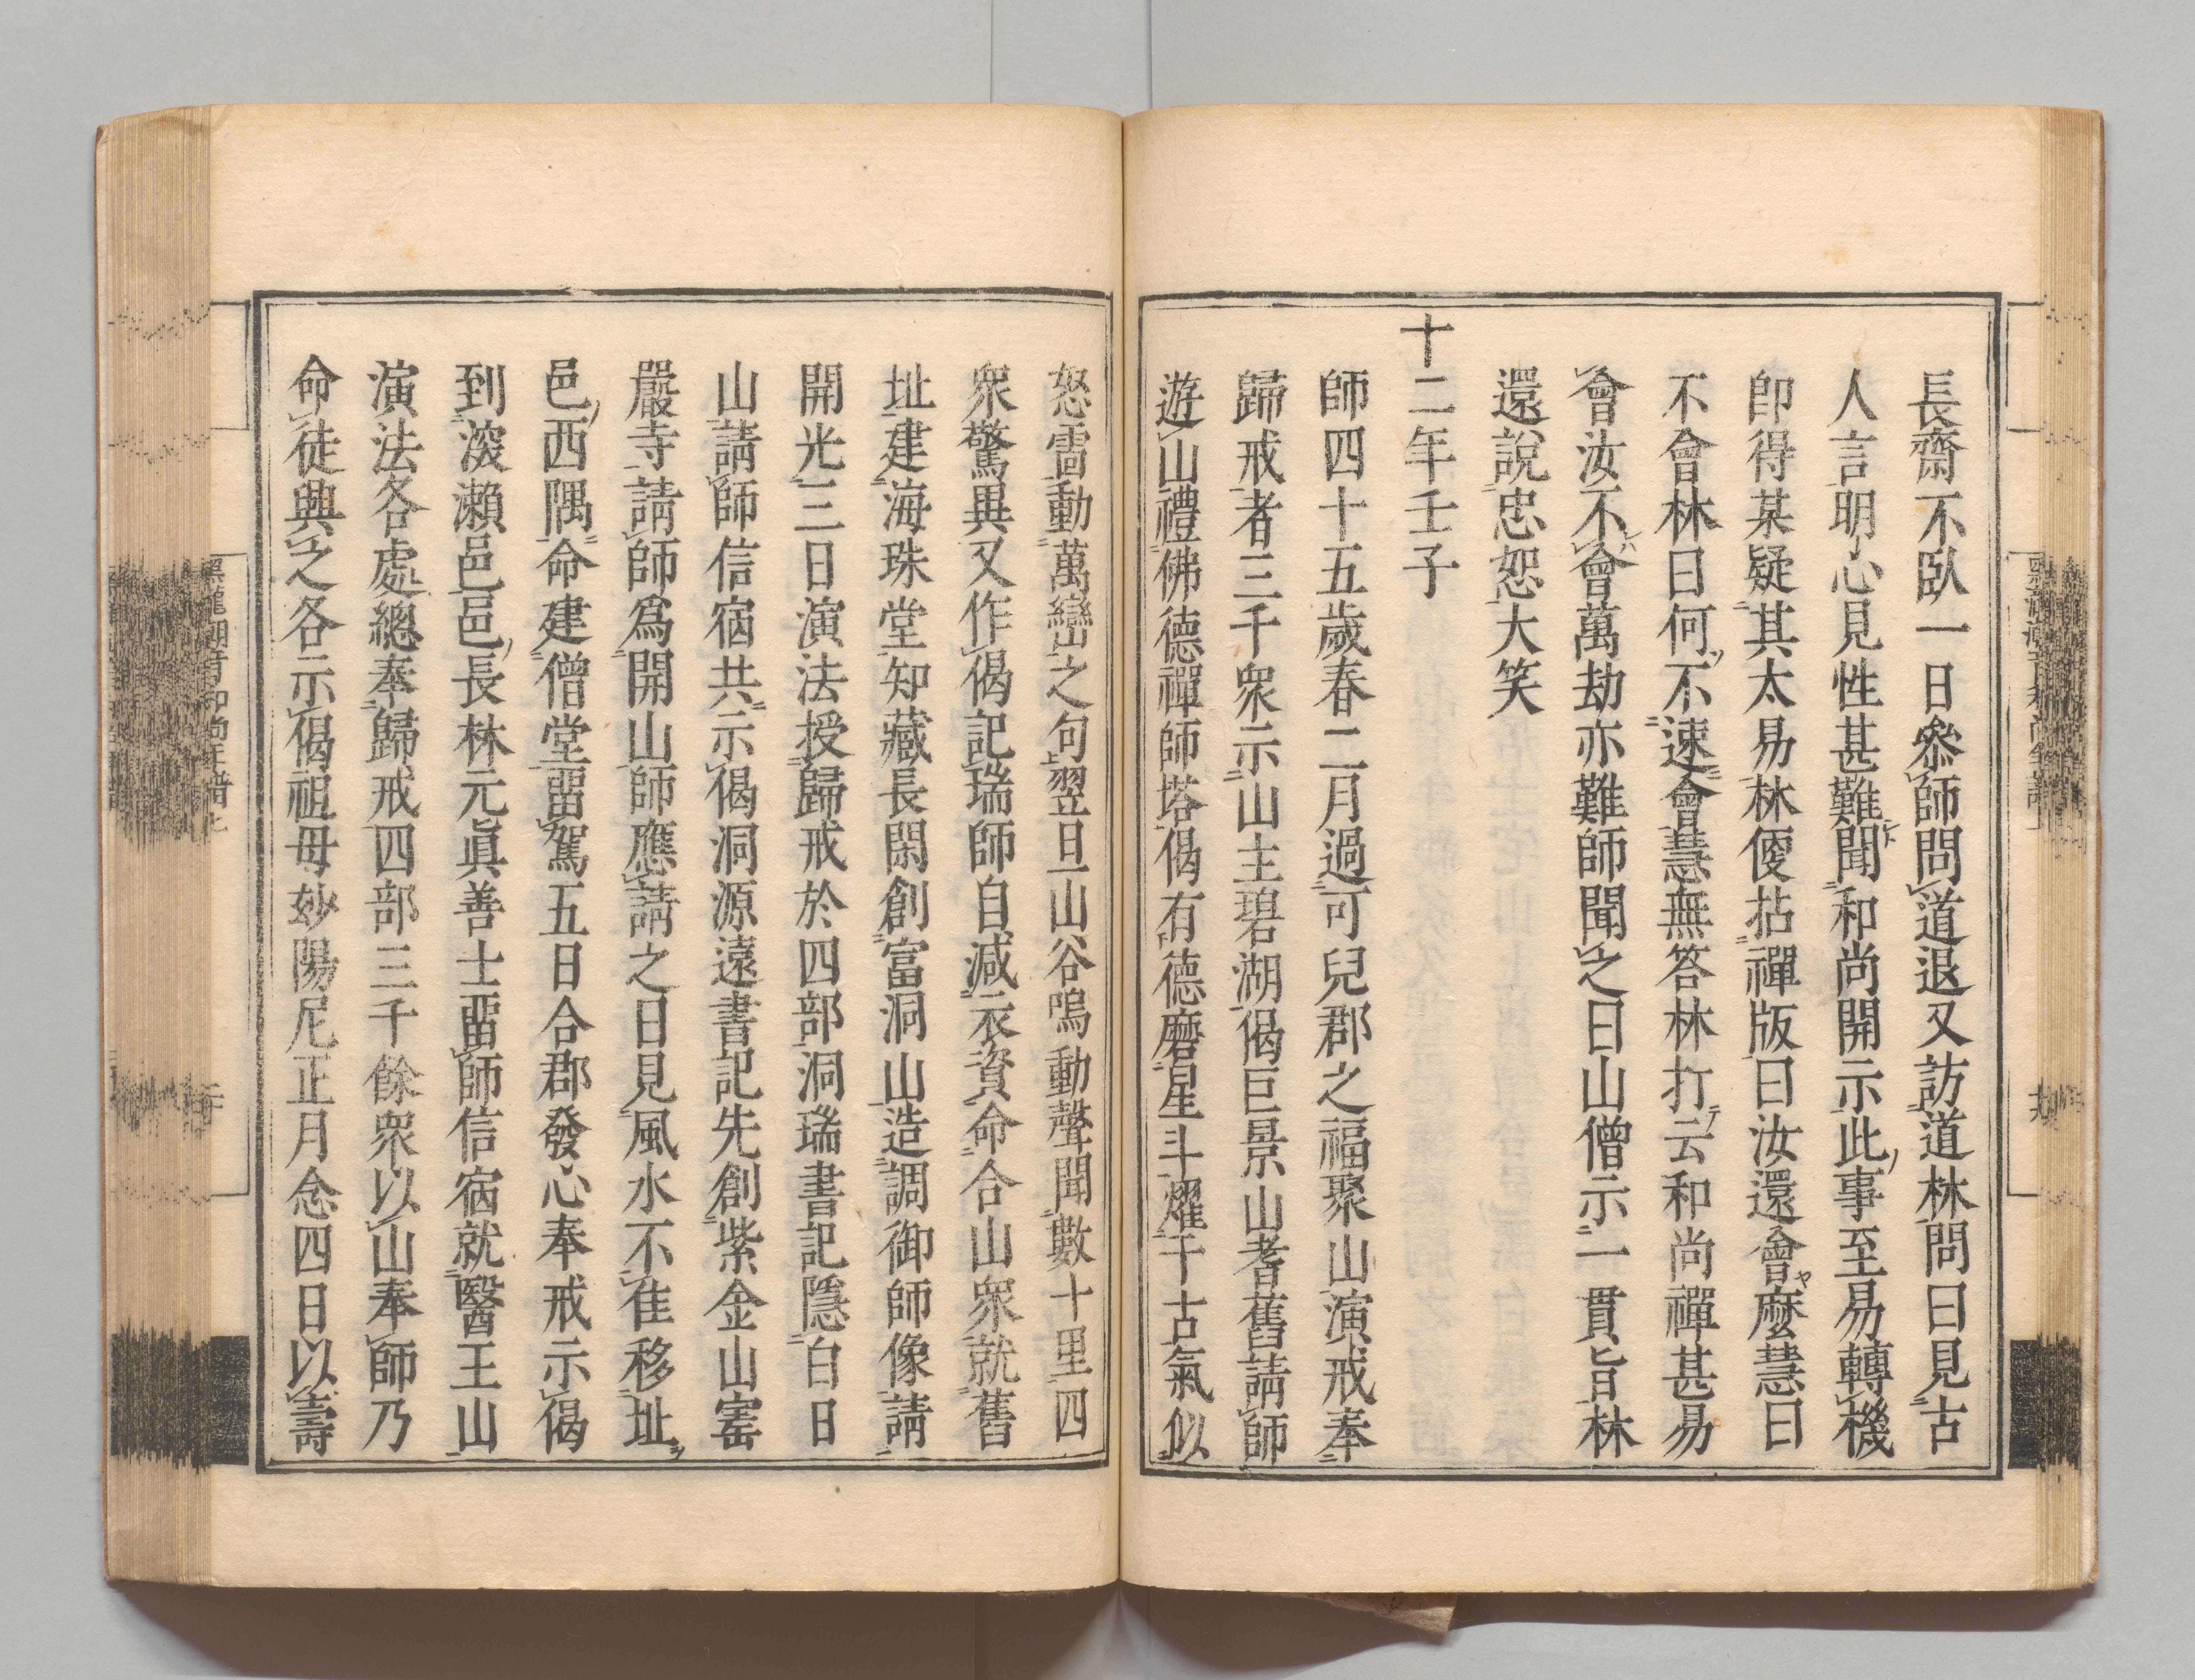 長齋不臥一日參師問道退又訪道林問曰見古
人言明心見性甚難聞和尚開示此事至易轉機
卽得某疑其太易林便拈禪版曰汝還會麼慧曰
不會林曰何不速會慧無答林打云和尚禪甚易
會汝不會萬劫亦難師聞之曰山僧示一貫旨林
還說忠恕大笑
十二年壬子
師四十五歲春二月過可兒郡之福聚山演戒奉
歸戒者三千衆示山主碧湖偈巨景山耆舊請師
遊山禮佛德禪師塔偈有德磨星斗耀千古氣似
怒雷動萬巒之句翌旦山谷鳴動聲聞數十里四
衆驚異又作偈記瑞師自減衣資命合山衆就舊
址建海珠堂知藏長閑創富洞山造調御師像請
開光三日演法授歸戒於四部洞瑞書記隱白日
山請師信宿共示偈洞源遠書記先創紫金山窑
嚴寺請師爲開山師應請之日見風水不佳移址
邑西隅命建僧堂畱駕五日合郡發心奉戒示偈
到瀬邑邑長林元眞善士畱師信宿就醫王山
演法各處總奉歸戒四部三千餘衆以山奉師乃
命徒興之各示偈祖母妙陽尼正月念四日以壽